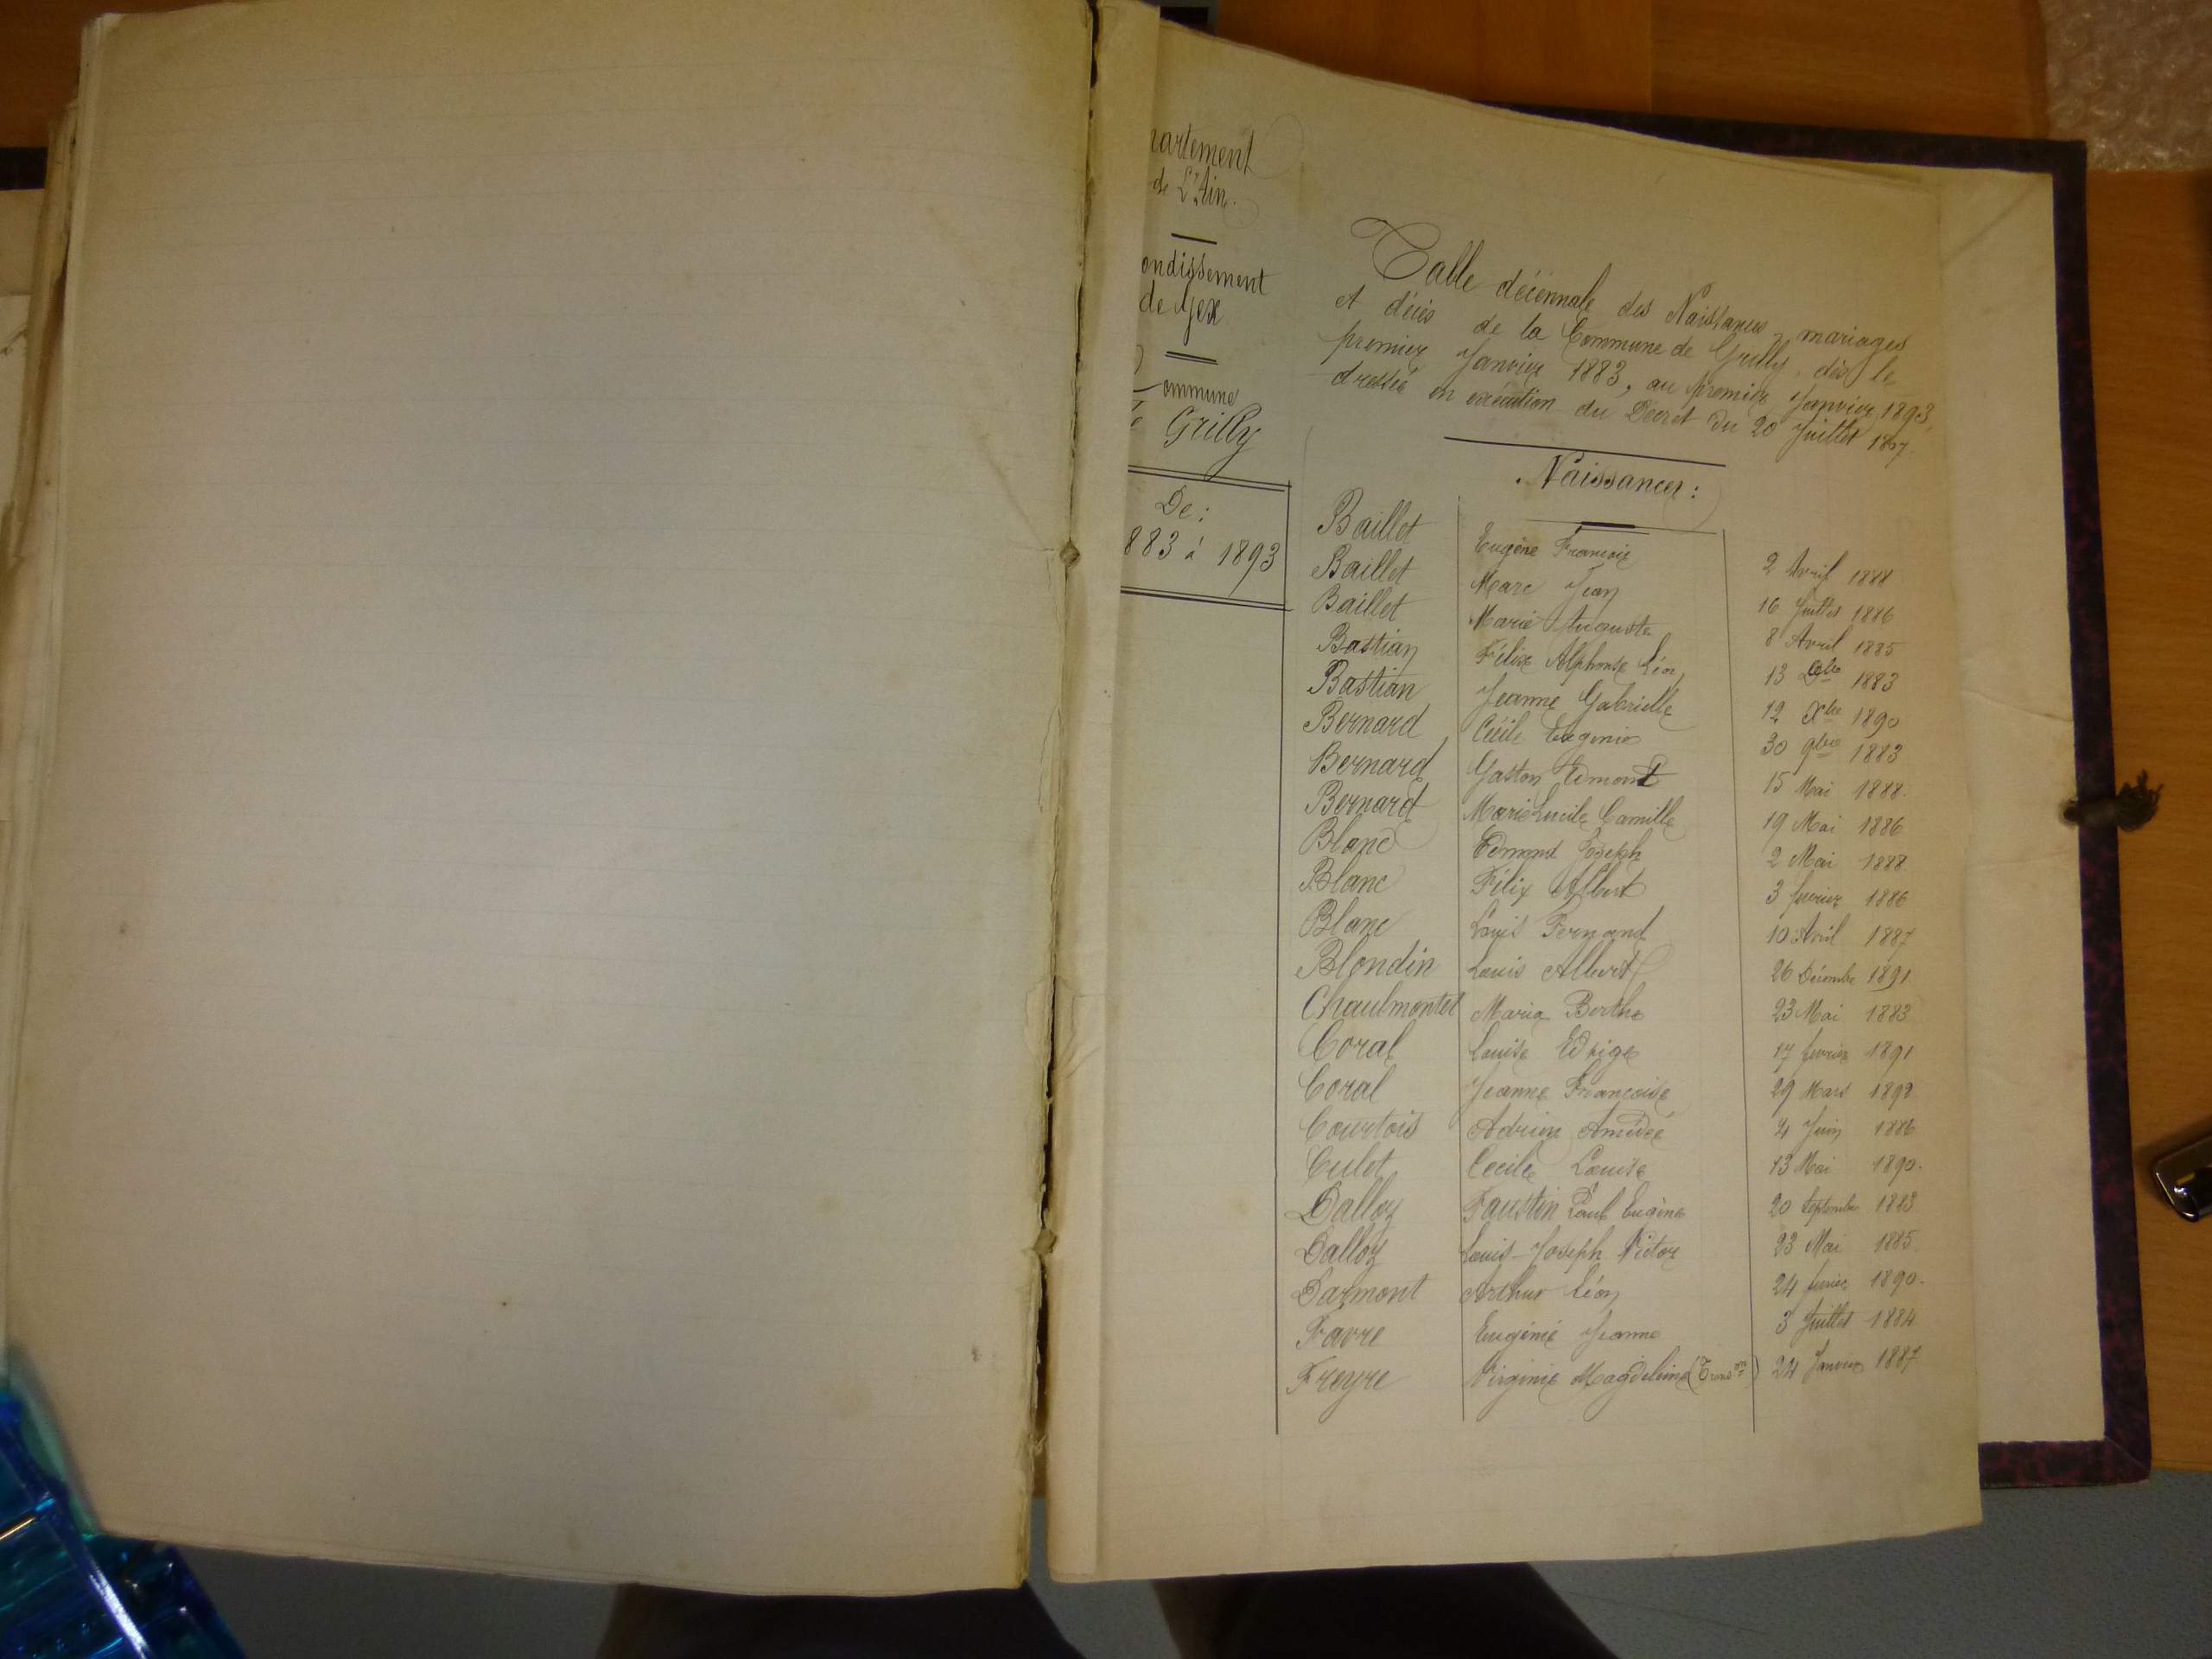 artement
de L'Ain.
ondissement
de Gex
ommune
Grilly
De:
883 à 1893
Table décennale des Naissances, mariages
et décès de la Commune de Grilly, dès le
premier Janvier 1883, au premier Janvier 1893,
dressée en exécution du Décret du 20 Juillet 1807.
Naissances:
Baillet Eugène François 2 Avril 1888
Baillet Marc Jean 16 Juillet 1886
Baillet Marie Auguste 8 Avril 1885
Bastian Félix Alphonse Léon 13 1883
Bastian Jeanne Gabrielle 12 Xbre 1890
Bernard Cécile Eugénie 30 9bre 1883
Bernard Gaston Edmond 15 Mai 1888.
Bernard Marie Lucile Camille 19 Mai 1886
Blanc Edmond Joseph 2 Mai 1888.
Blanc Félix Albert 3 février 1886
Blanc Louis Fernand 10 Avril 1887
Blondin Louis Albert 26 Décembre 1891
Chaulmontet Maria Berthe 23 Mai 1883
Coral Louise Edvige 17 février 1891
Coral Jeanne Françoise 29 Mars 1892
Courtois Adrien Amédée 4 Juin 1886
Culet Cecile Louise 13 Mai 1890.
Dalloz Faustin Paul Eugène 20 Septembre 1883
Dalloz Louis-Joseph Victor 23 Mai 1885
Darmont Arthur Léon 24 février 1890.
Favre Eugénie Jeanne 3 Juillet 1884
Freyre Virginie Magdeleine (Trans on) 24 Janvier 1887